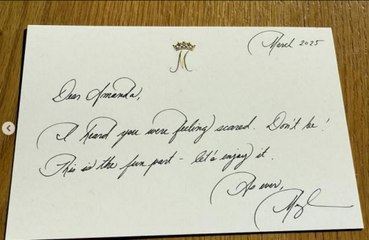 March 2025
Dear Amanda,
I heard you were feeling scared. Don't be!
This is the fun part – let's enjoy it.
As ever,